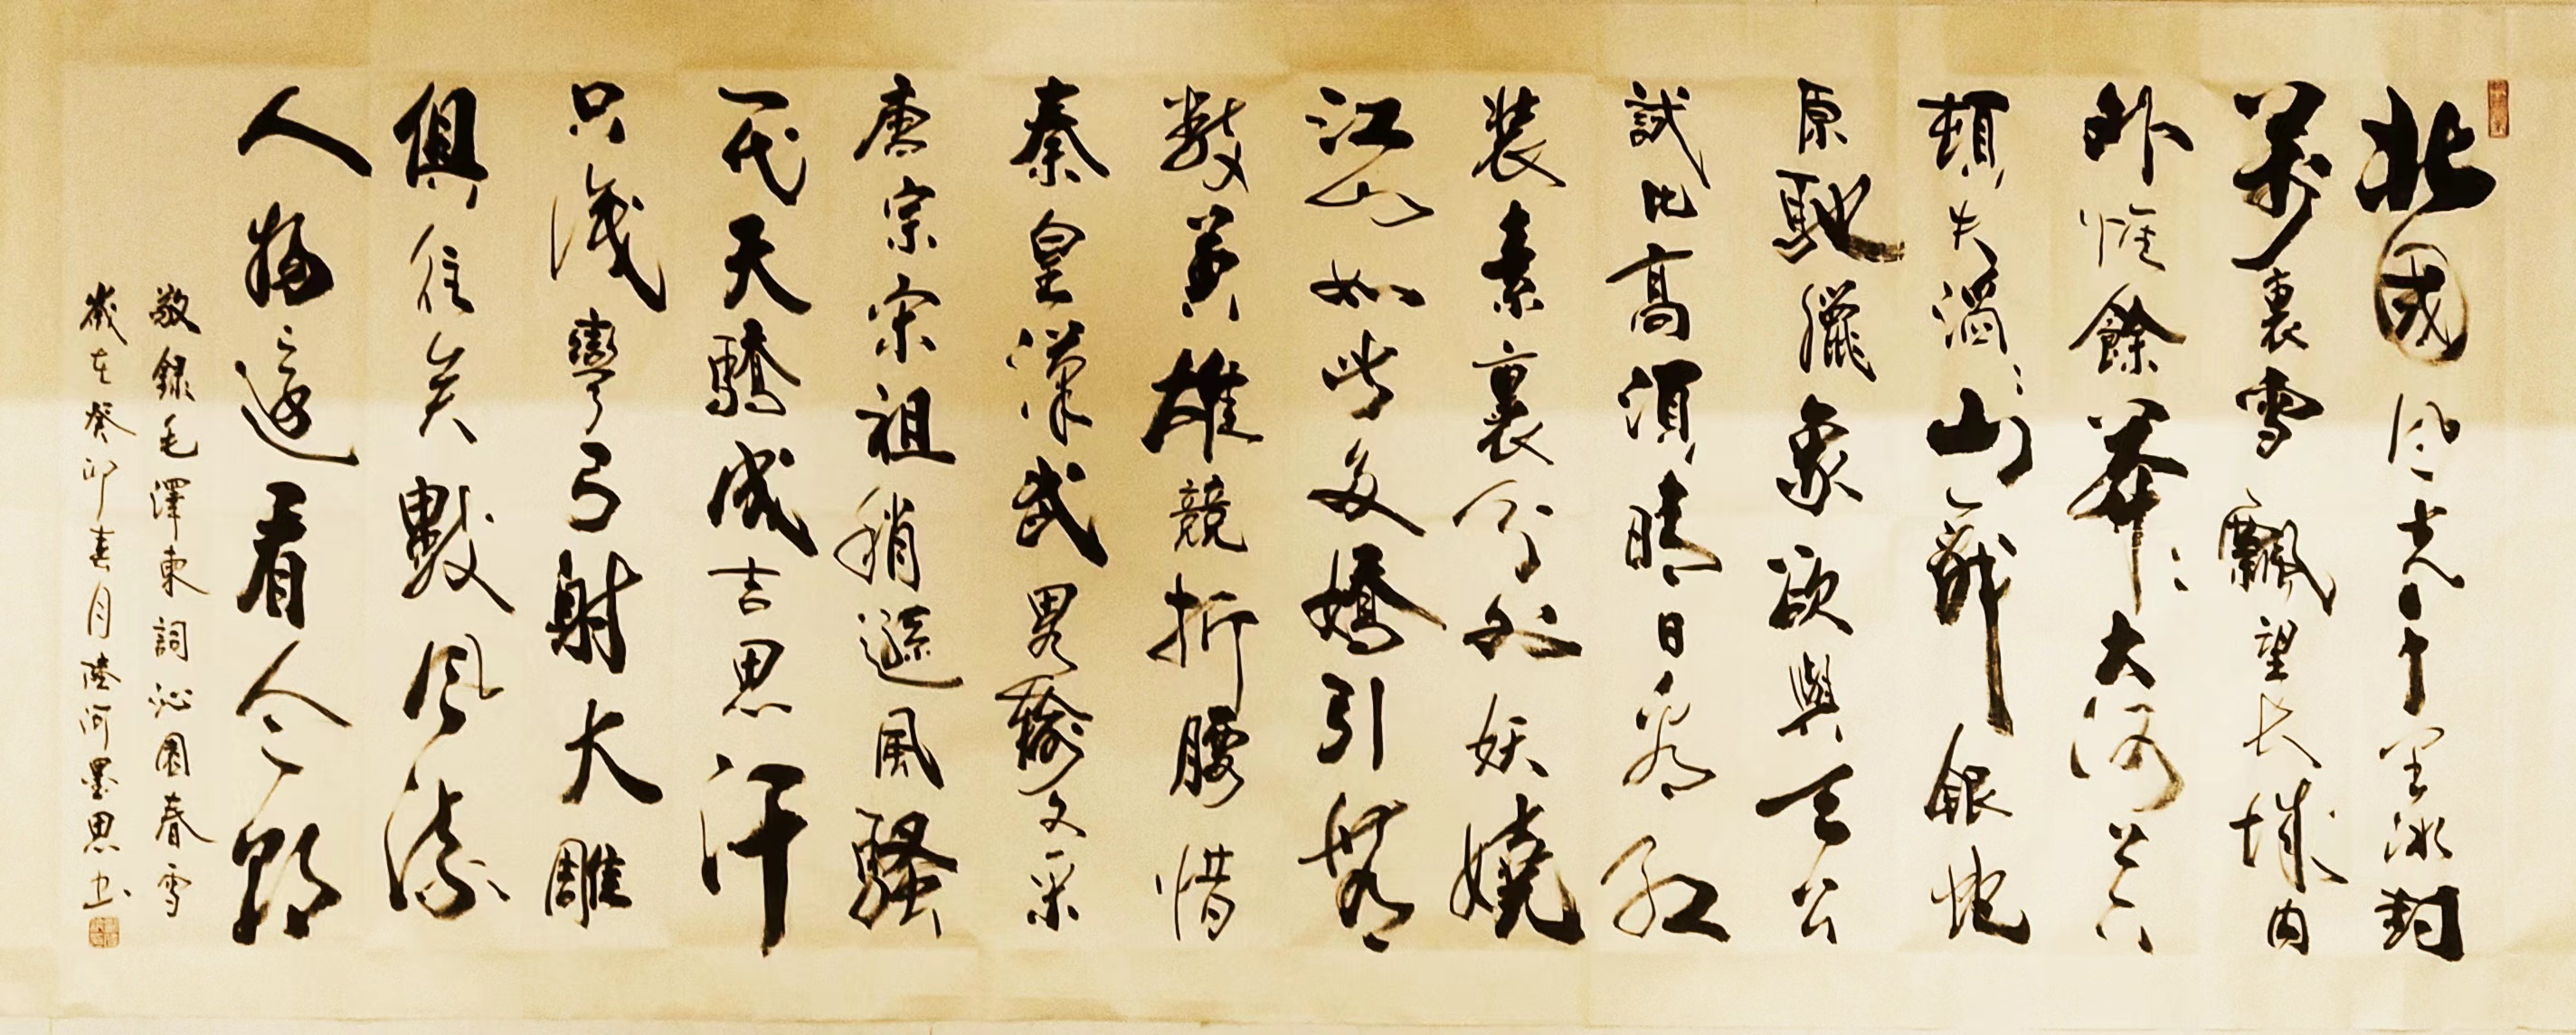 北國风光千里冰封
萬裏雪飄望长城内
外惟餘莽〻大河上下
頓失滔〻山舞銀蛇
原馳臘象欲與天公
試比高須晴日看红
裝素裹分外妖嬈
江山如此多嬌引無
數英雄競折腰惜
秦皇漢武畧輸文采
唐宗宋祖稍遜風騷
一代天驕成吉思汗
只識彎弓射大雕
俱往矣數风流
人物還看今朝
敬録毛澤東詞沁園春雪
歲在癸卯春月陸河墨思书